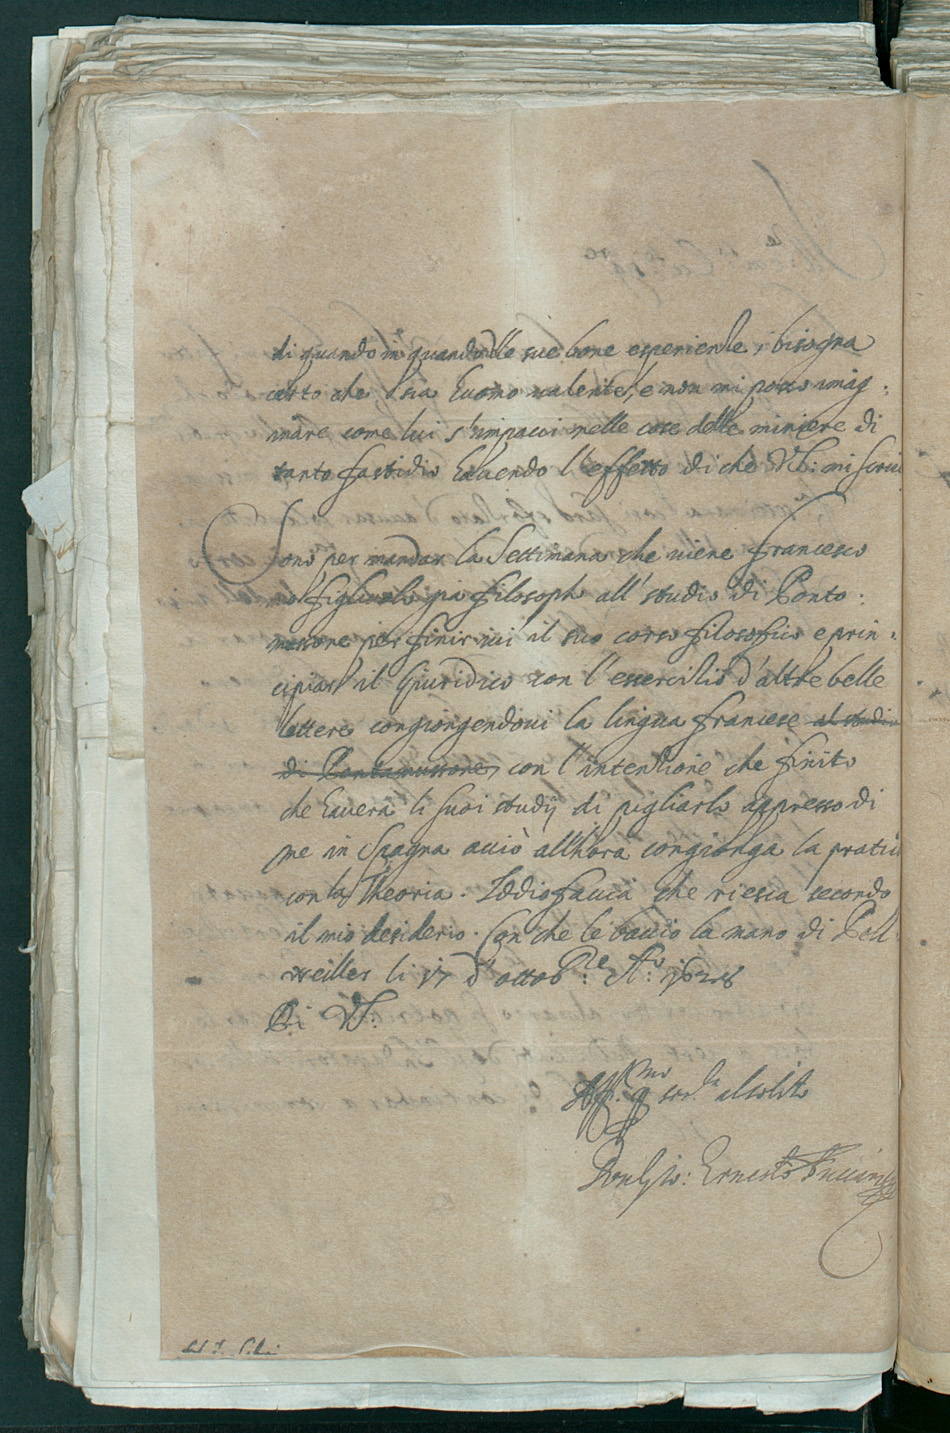 di quando in quando delle sue bone esperienze, bisogna
certo che sia huomo valente, e non mi posso imag:
inare come lui s'impacci nelle cose delle miniere di
tanto fastidio havendo l'effetto di che VS: mi scrive
Sono per mandar la Settimana che viene Francesco
mio figliuolo già filosopho all'studio di Ponto:
mossone per finir ivi il suo corso filosofico e prin:
cipiar il Giuridico con l'essercitio d'altre belle
lettere congiongendovi la lingua francese al studio
di Pontamussone, con l'intentione che finito
che havera li suoi studij di pigliarlo appresso di
me in Spagna acciò all'hora congionga la pratica
con la Theoria. Iddio faccia che riesca secondo
il mio desiderio. Con che le baccio la mano di Poll
weiller li 17 d'ottobre Ao: 1628
Di VS:
Affmo al solito
Ernesto